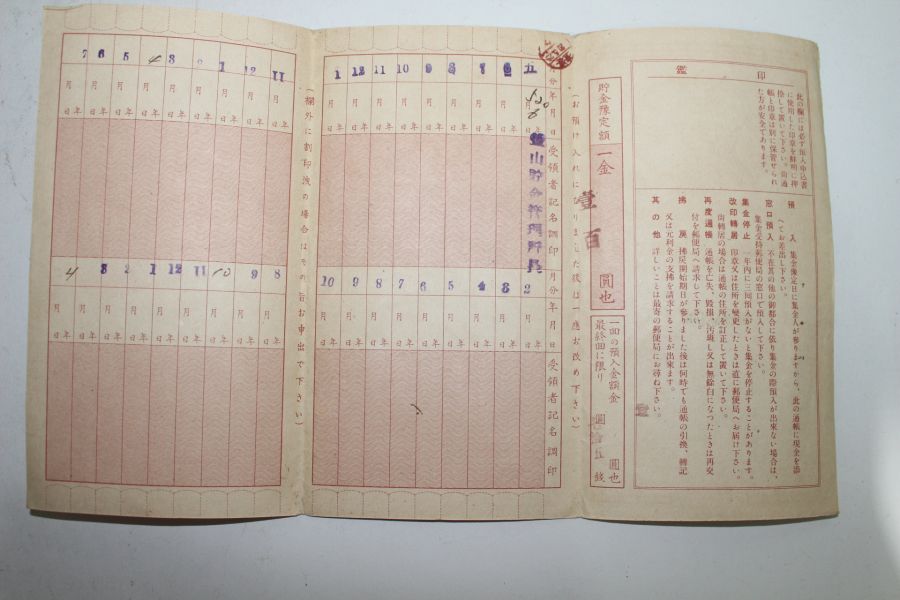 印鑑
此の欄には必ず預入申込書
に使用した印章を鮮明に押
捺して置いて下さい。尚通
帳と印章は別に保管せられ
た方が安全であります。
預入 集金豫定日に集金人が參りますから、此の通帳に現金を添
へてお差出し下さい。
窓口預入 不在其の他の御都合に依り集金の際預入が出來ない場合は、
集金受持郵便局の窓口で預入して下さい。
集金停止 一年內に三回預入がないと集金を停止することがあります。
改印轉居 印章又は住所を變更したときは直に郵便局へお届け下さい。
尙轉居の場合は通帳の住所を訂正して置いて下さい。
再度通帳 通帳を亡失、毀損、汚斑し又は無餘白になつたときは再交
付を郵便局へ請求して下さい。
拂戾 拂戾開始期日が參りました後は何時でも通帳の引換、轉記
又は元利金の支拂を請求することが出來ます。
其の他 詳しいことは最寄の郵便局にお尋ね下さい。
貯金豫定額 一金 壹百 圓也
一回の預入金額金 圓也
最終回に限り 圓 錢
(お預け入れになりました後は一應お改め下さい)
月分 年月日 受領者記名調印
5 6 7 8 9 10 11 12 1
年月日
山貯金管理所長
月分 年月日 受領者記名調印
2 3 4 5 6 7 8 9 10
年月日
(欄外に割印洩の場合はその旨お申出で下さい)
11 12 1 2 3 4 5 6 7
年月日
8 9 10 11 12 1 2 3 4
年月日